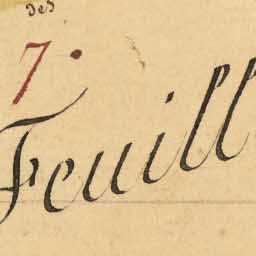 des
7.
Feuill